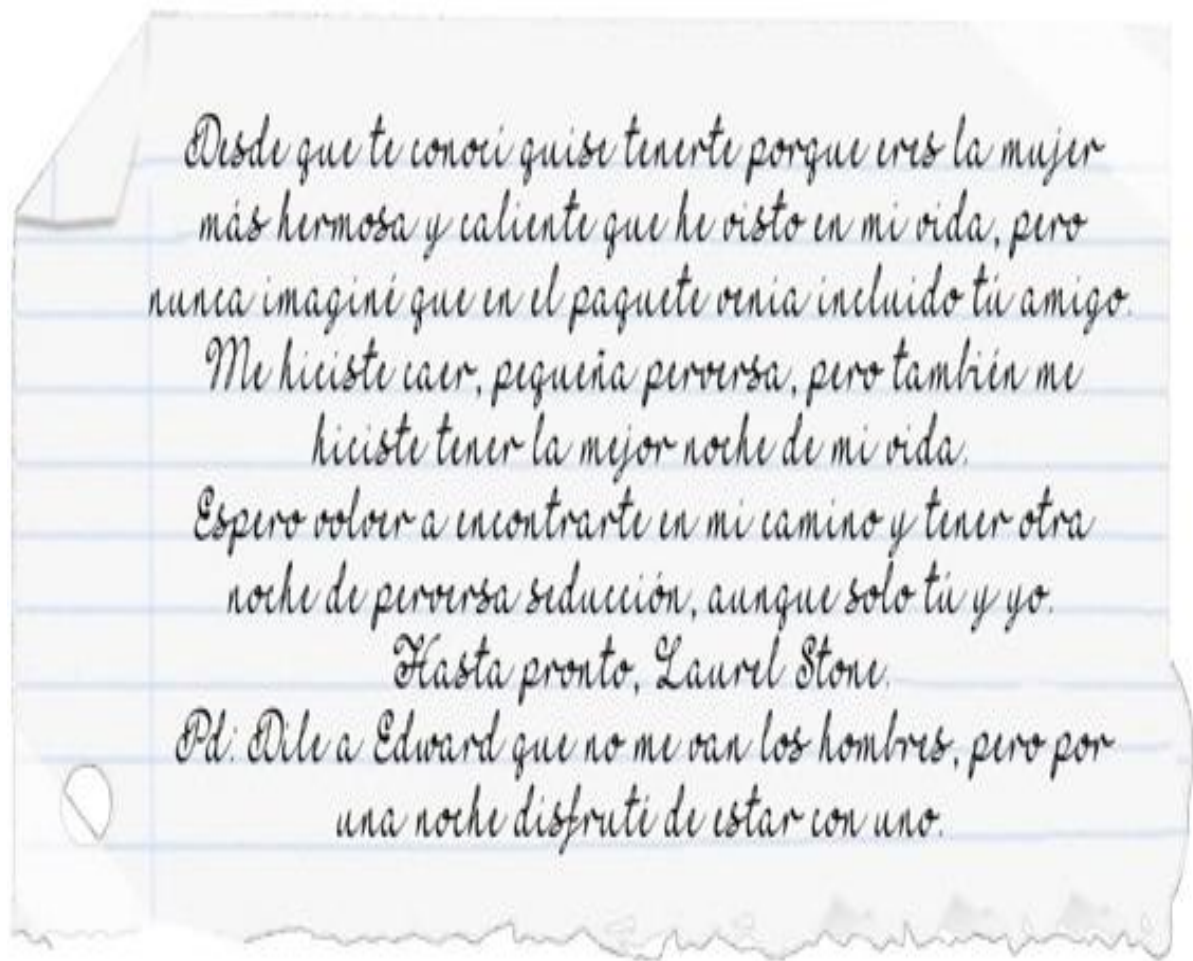 Desde que te conocí quise tenerte porque eres la mujer
más hermosa y caliente que he visto en mi vida, pero
nunca imaginé que en el paquete venia incluido tú amigo.
Me hiciste caer, pequeña perversa, pero también me
hiciste tener la mejor noche de mi vida.
Espero volver a encontrarte en mi camino y tener otra
noche de perversa seducción, aunque solo tú y yo.
Hasta pronto, Laurel Stone.
Pd: Dile a Edward que no me van los hombres, pero por
una noche disfruté de estar con uno.